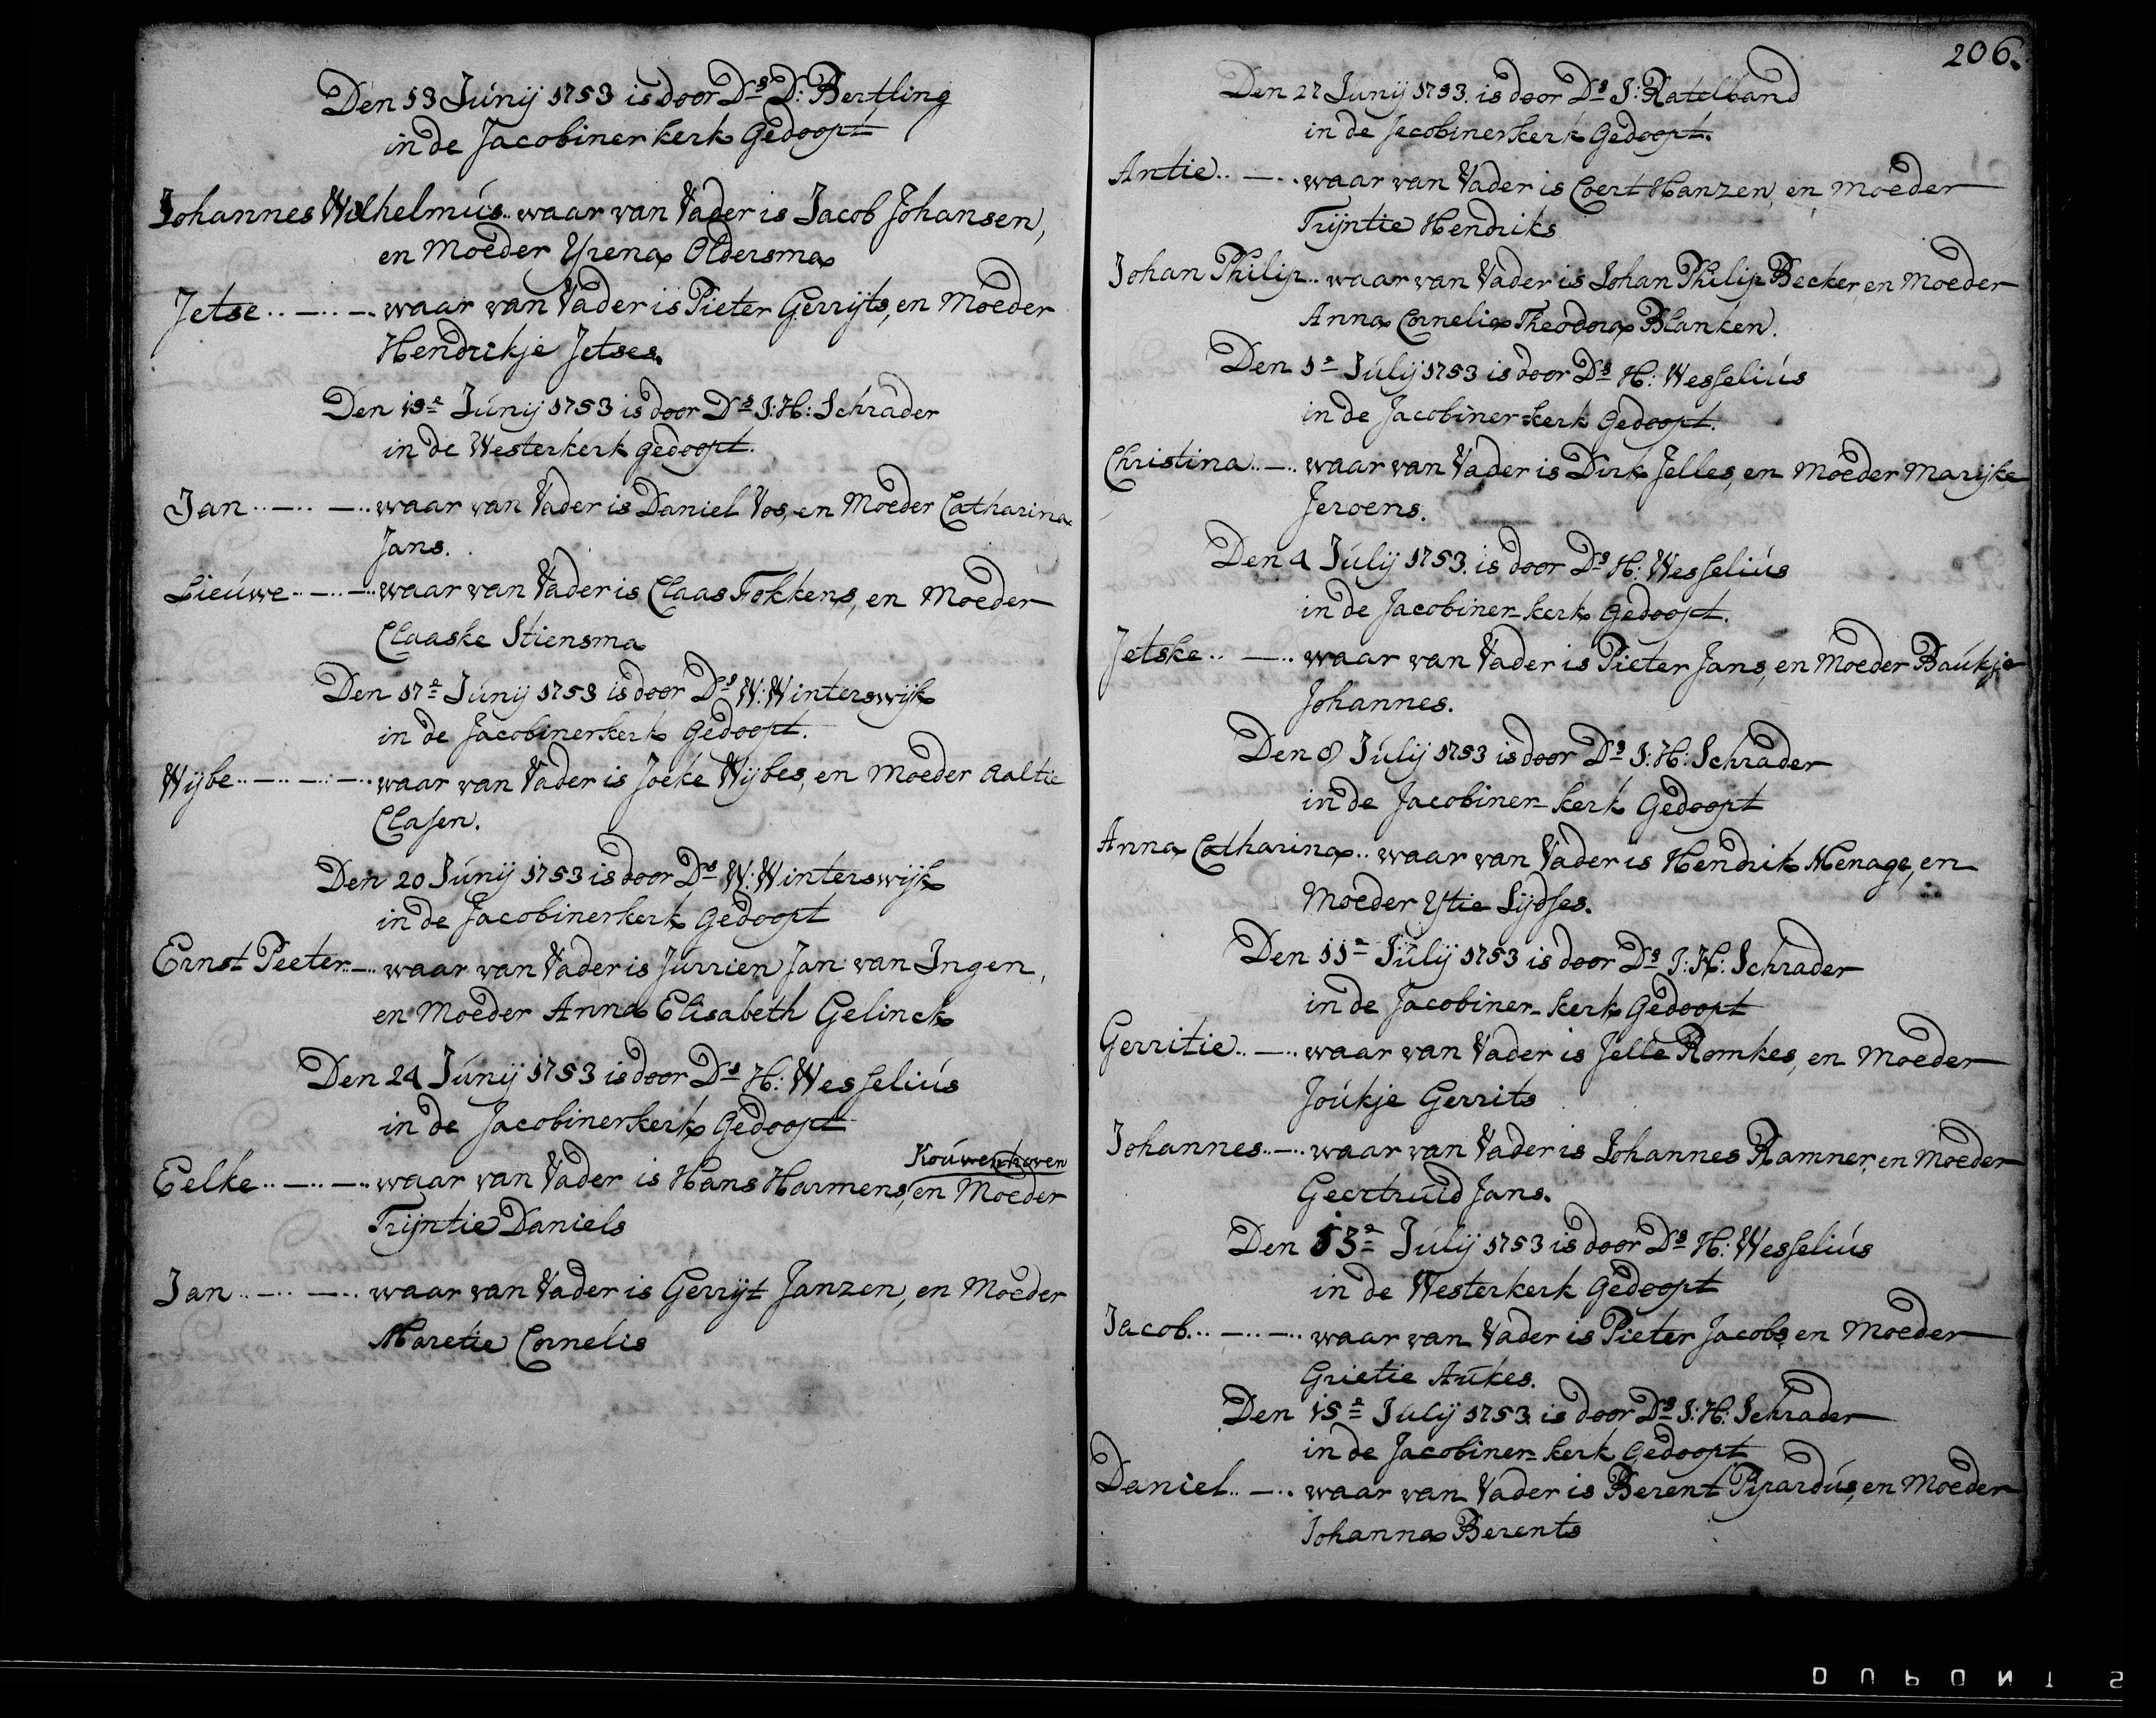 Den 13 Júnij 1753 is door Ds D: Bertling
in de Jacobiner kerk Gedoopt
Johannes Wilhelmús.. waar van Vader is Jacob Johansen,
en Moeder Yrena Oldersma
Jetse.. —.. —.. waar van Vader is Pieter Gerrijts, en Moeder
Hendrikje Jetses.
Den 15e Júnij 1753 is door Ds J: H: Schrader
in de Westerkerk gedoopt.
Jan.. —.. —.. waar van Vader is Daniel Vos, en Moeder Catharina
Jans.
Lieúwe.. —.. —.. waar van Vader is Claas Fokkens, en Moeder
Claaske Stiensma
Den 17e Júnij 1753 is door Ds W: Winterswijk
in de Jacobinerkerk Gedoopt.
Wijbe.. —.. —.. —.. waar van Vader is Joeke Wijbes, en Moeder Aaltie
Clasen.
Den 20 Júnij 1753 is door Ds W: Winterswijk
in de Jacobinerkerk Gedoopt
Ernst Peeter.. —.. waar van Vader is Jurrien Jan van Ingen,
en Moeder Anna Elisabeth Gelinck
Den 24 Júnij 1753 is door Ds H: Wesseliús
in de Jacobinerkerk Gedoopt
Koúwenhoven
Eelke.. —.. —.. waar van Vader is Hans Harmens, en Moeder
Trijntie Daniels
Jan.. —.. —.. waar van Vader is Gerrijt Janzen, en Moeder
Maretie Cornelis
206.
Den 27 Junij 1753. is door Ds J: Ratelband
in de Jacobinerkerk Gedoopt.
Antie.. —.. waar van Vader is Coert Hanzen, en Moeder
Trijntie Hendriks
Johan Philip.. waar van Vader is Johan Philip Becker, en Moeder
Anna Cornelia Theodora Blanken.
Den 1e Júlij 1753 is door Ds H: Wesseliús
in de Jacobiner-kerk Gedoopt.
Christina.. —.. waar van Vader is Dirk Jelles, en Moeder Marijke
Jeroens.
Den 4 Júlij 1753. is door Ds H: Wesseliús
in de Jacobiner-kerk Gedoopt.
Jetske.. —.. waar van Vader is Pieter Jans, en Moeder Baúkje
Johannes.
Den 8 Júlij 1753 is door Ds J: H: Schrader
in de Jacobiner-kerk Gedoopt
Anna Catharina.. waar van Vader is Hendrik Menage, en
Moeder Ytie Lijdses.
Den 11e Júlij 1753 is door Ds J: H: Schrader
in de Jacobiner-kerk Gedoopt
Gerritie.. —.. waar van Vader is Jelle Romkes, en Moeder
Joúkje Gerrits
Johannes.. —.. waar van Vader is Johannes Ramner, en Moeder
Geertruid Jans.
Den 13e Júlij 1753 is door Ds H: Wesseliús
in de Westerkerk Gedoopt
Jacob... —.. —.. waar van Vader is Pieter Jacobs, en Moeder
Grietie Aúkes.
Den 15e Júlij 1753 is door Ds J: H: Schrader
in de Jacobiner-kerk Gedoopt
Daniel.. —.. waar van Vader is Berent Pipardús, en Moeder
Johanna Berents
DUPONT S